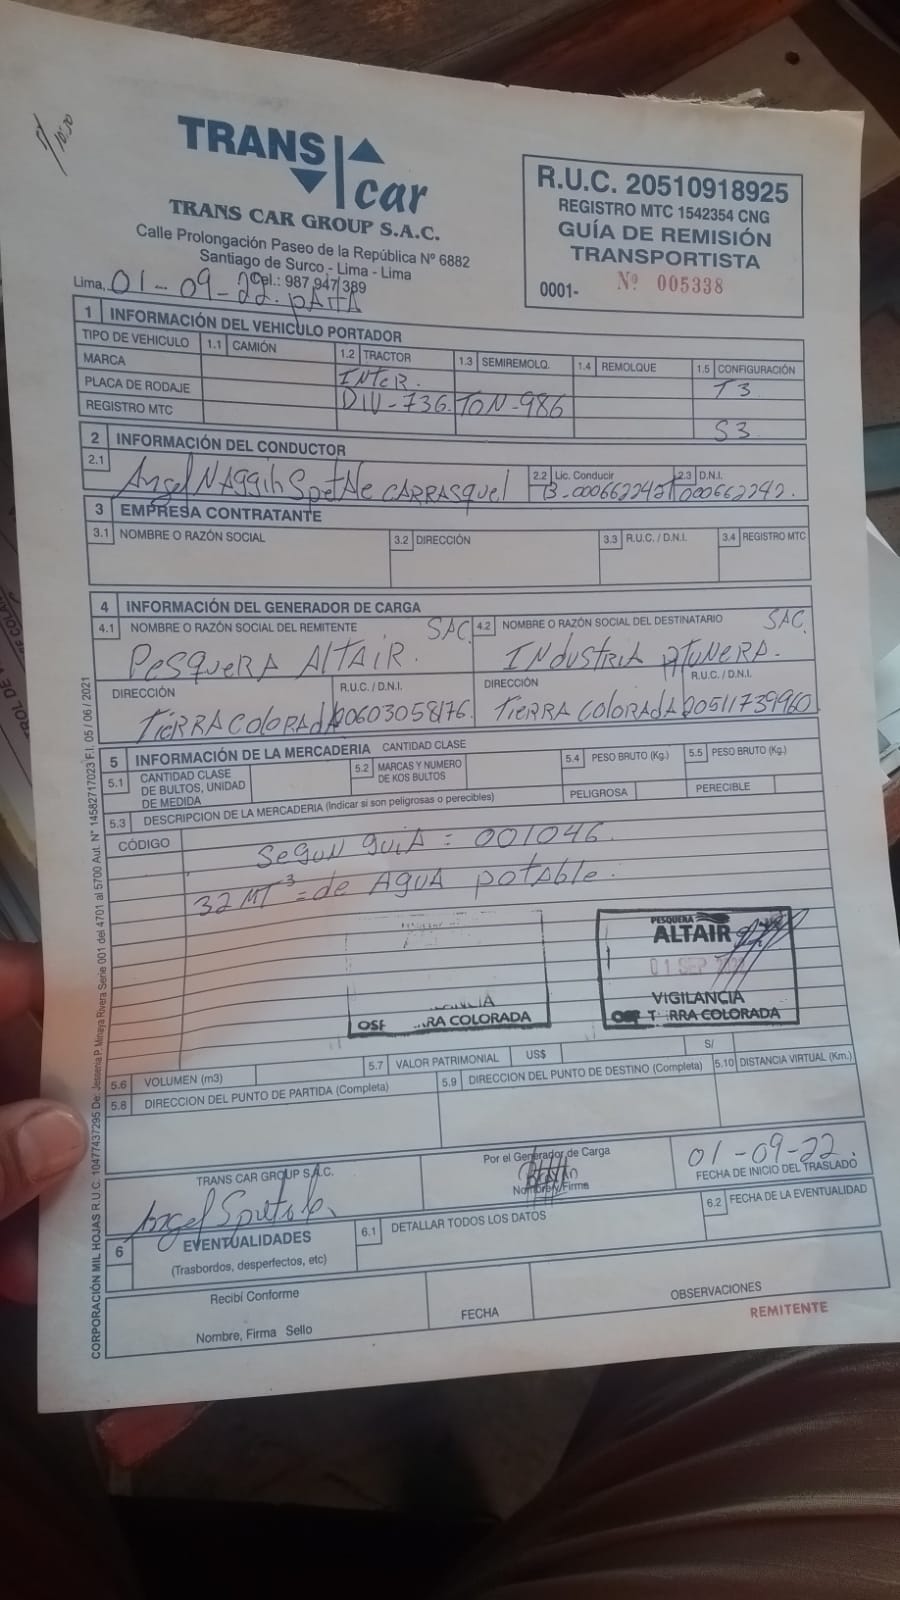 TRANS car
TRANS CAR GROUP S.A.C.
Calle Prolongación Paseo de la República Nº 6882
Santiago de Surco - Lima - Lima
Tel.: 987 947 389
Lima, 01-09-22. pAitA
R.U.C. 20510918925
REGISTRO MTC 1542354 CNG
GUÍA DE REMISIÓN
TRANSPORTISTA
0001- Nº 005338
1 INFORMACIÓN DEL VEHICULO PORTADOR
TIPO DE VEHICULO 1.1 CAMIÓN 1.2 TRACTOR 1.3 SEMIREMOLQ. 1.4 REMOLQUE 1.5 CONFIGURACIÓN
MARCA INteR. T3
PLACA DE RODAJE DIU-736 TON-986
REGISTRO MTC S3
2 INFORMACIÓN DEL CONDUCTOR
2.1 Angel CARRASquel 2.2 Lic. Conducir B-000662242 2.3 D.N.I. 000662242.
3 EMPRESA CONTRATANTE
3.1 NOMBRE O RAZÓN SOCIAL 3.2 DIRECCIÓN 3.3 R.U.C. / D.N.I. 3.4 REGISTRO MTC
4 INFORMACIÓN DEL GENERADOR DE CARGA
4.1 NOMBRE O RAZÓN SOCIAL DEL REMITENTE SAC 4.2 NOMBRE O RAZÓN SOCIAL DEL DESTINATARIO SAC
PesqueRA AltAiR. INdustRIA AtUNeRA.
DIRECCIÓN R.U.C. / D.N.I. DIRECCIÓN R.U.C. / D.N.I.
TieRRA ColoRAdA 20603058176. TieRRA ColoRAdA 20511739960
5 INFORMACIÓN DE LA MERCADERIA CANTIDAD CLASE
5.1 CANTIDAD CLASE DE BULTOS, UNIDAD DE MEDIDA 5.2 MARCAS Y NUMERO DE KOS BULTOS 5.4 PESO BRUTO (Kg.) 5.5 PESO BRUTO (Kg.)
5.3 DESCRIPCION DE LA MERCADERIA (Indicar si son peligrosas o perecibles) PELIGROSA PERECIBLE
CÓDIGO
SeGUN GuiA = 001046.
32 MT³ = de AGUA potAble.
OSF RRA COLORADA
PESQUERA
ALTAIR
01 SEP
VIGILANCIA
RRA COLORADA
5.6 VOLUMEN (m3) 5.7 VALOR PATRIMONIAL US$ S/
5.8 DIRECCION DEL PUNTO DE PARTIDA (Completa) 5.9 DIRECCION DEL PUNTO DE DESTINO (Completa) 5.10 DISTANCIA VIRTUAL (Km.)
TRANS CAR GROUP S.A.C. Por el Generador de Carga 01-09-22.
Nombre/Firma FECHA DE INICIO DEL TRASLADO
6 EVENTUALIDADES 6.1 DETALLAR TODOS LOS DATOS 6.2 FECHA DE LA EVENTUALIDAD
(Trasbordos, desperfectos, etc)
Recibí Conforme
Nombre, Firma Sello FECHA OBSERVACIONES
REMITENTE
CORPORACIÓN MIL HOJAS R.U.C. 10477437295 De: Jessenia P. Minaya Rivera Serie 001 del 4701 al 5700 Aut. Nº 14582717023 F.I. 05 / 06 / 2021